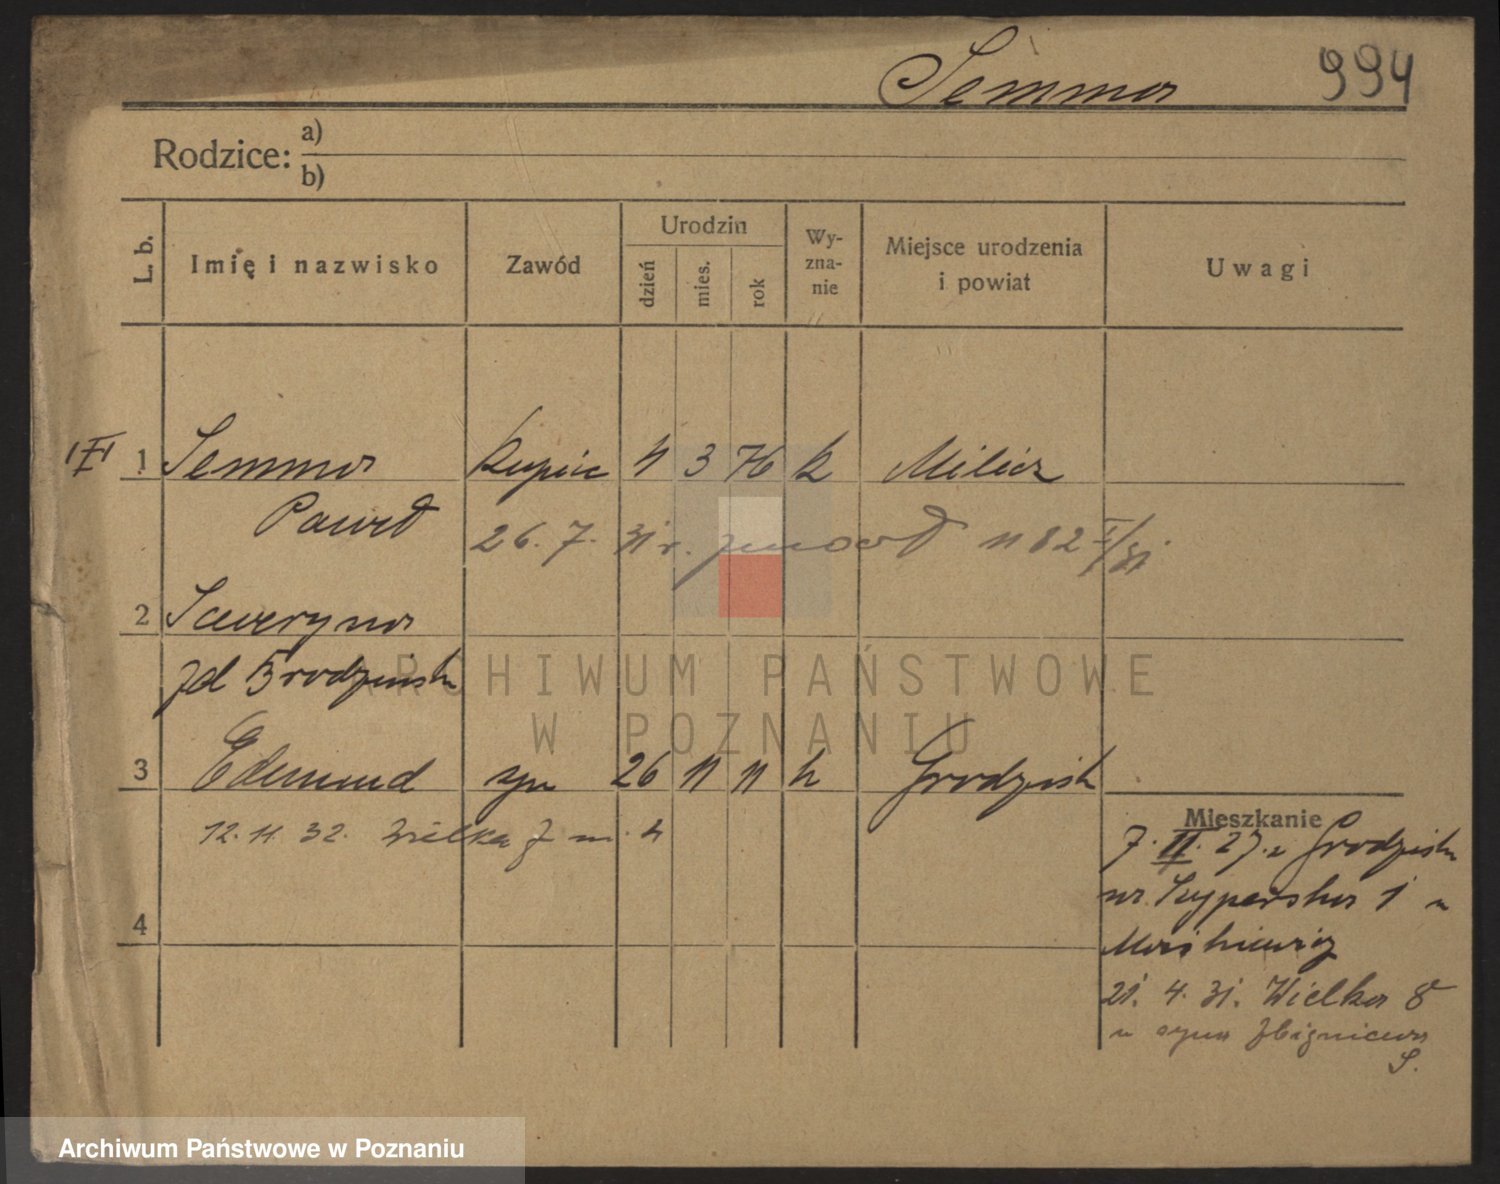 Semma 994
Rodzice: a)
b)
L. b. Imię i nazwisko Zawód Urodzin dzień mies. rok Wyznanie Miejsce urodzenia i powiat Uwagi
1 Semma Kupiec 4 3 76 k Milicz
Paweł 26. 7. 31 r. zmarł 82
2 Seweryna
zd Brodzińsk
3 Edmund syn 26 11 11 k Grodzisk
12. 11. 32. Wielka 7 m. 4
Mieszkanie
7. II. 27. z Grodzisk
Szyperska 1 u
21. 4. 31. Wielka 8
u syna Zbigniewa
S.
4
ARCHIWUM PAŃSTWOWE
W POZNANIU
Archiwum Państwowe w Poznaniu